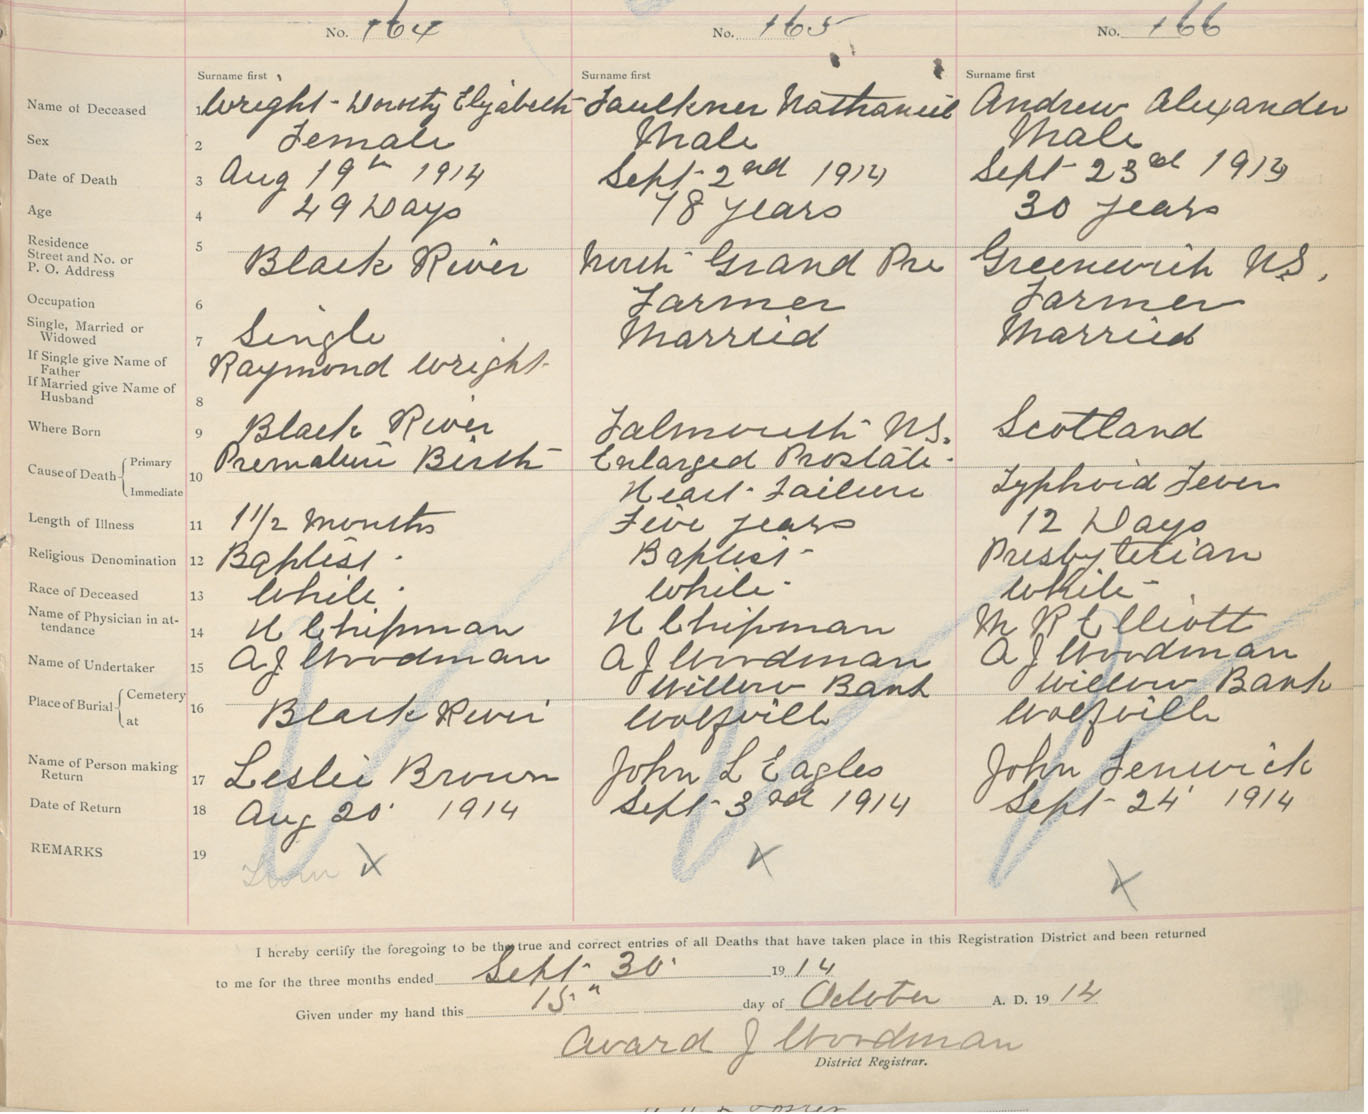 No. 164 No. 165 No. 166
Surname first Surname first Surname first
Name of Deceased 1 Wright - Dorothy Elizabeth Faulkner Nathaniel Andrew Alexander
Sex 2 Female Male Male
Date of Death 3 Aug 19th 1914 Sept 2nd 1914 Sept 23rd 1914
Age 4 49 Days 78 years 30 years
Residence
Street and No. or
P. O. Address 5 Black River North Grand Pre Greenwich N.S.
Occupation 6 Farmer Farmer
Single, Married or
Widowed 7 Single Married Married
If Single give Name of
Father Raymond Wright
If Married give Name of
Husband 8
Where Born 9 Black River Falmouth N.S. Scotland
Cause of Death Primary Premature Birth Enlarged Prostate
Immediate 10 Heart Failure Typhoid Fever
Length of Illness 11 1 1/2 Months Five years 12 Days
Religious Denomination 12 Baptist Baptist Presbyterian
Race of Deceased 13 White White White
Name of Physician in at-
tendance 14 H Chipman H Chipman M R Elliott
Name of Undertaker 15 A J Woodman A J Woodman A J Woodman
Place of Burial Cemetery Willow Bank Willow Bank
at 16 Black River Wolfville Wolfville
Name of Person making
Return 17 Leslie Brown John L Eagles John Fenwick
Date of Return 18 Aug 20 1914 Sept 3rd 1914 Sept 24 1914
REMARKS 19 x x x
I hereby certify the foregoing to be the true and correct entries of all Deaths that have taken place in this Registration District and been returned
to me for the three months ended Sept 30 1914
Given under my hand this 15th day of October A. D. 1914
Avard J Woodman
District Registrar.